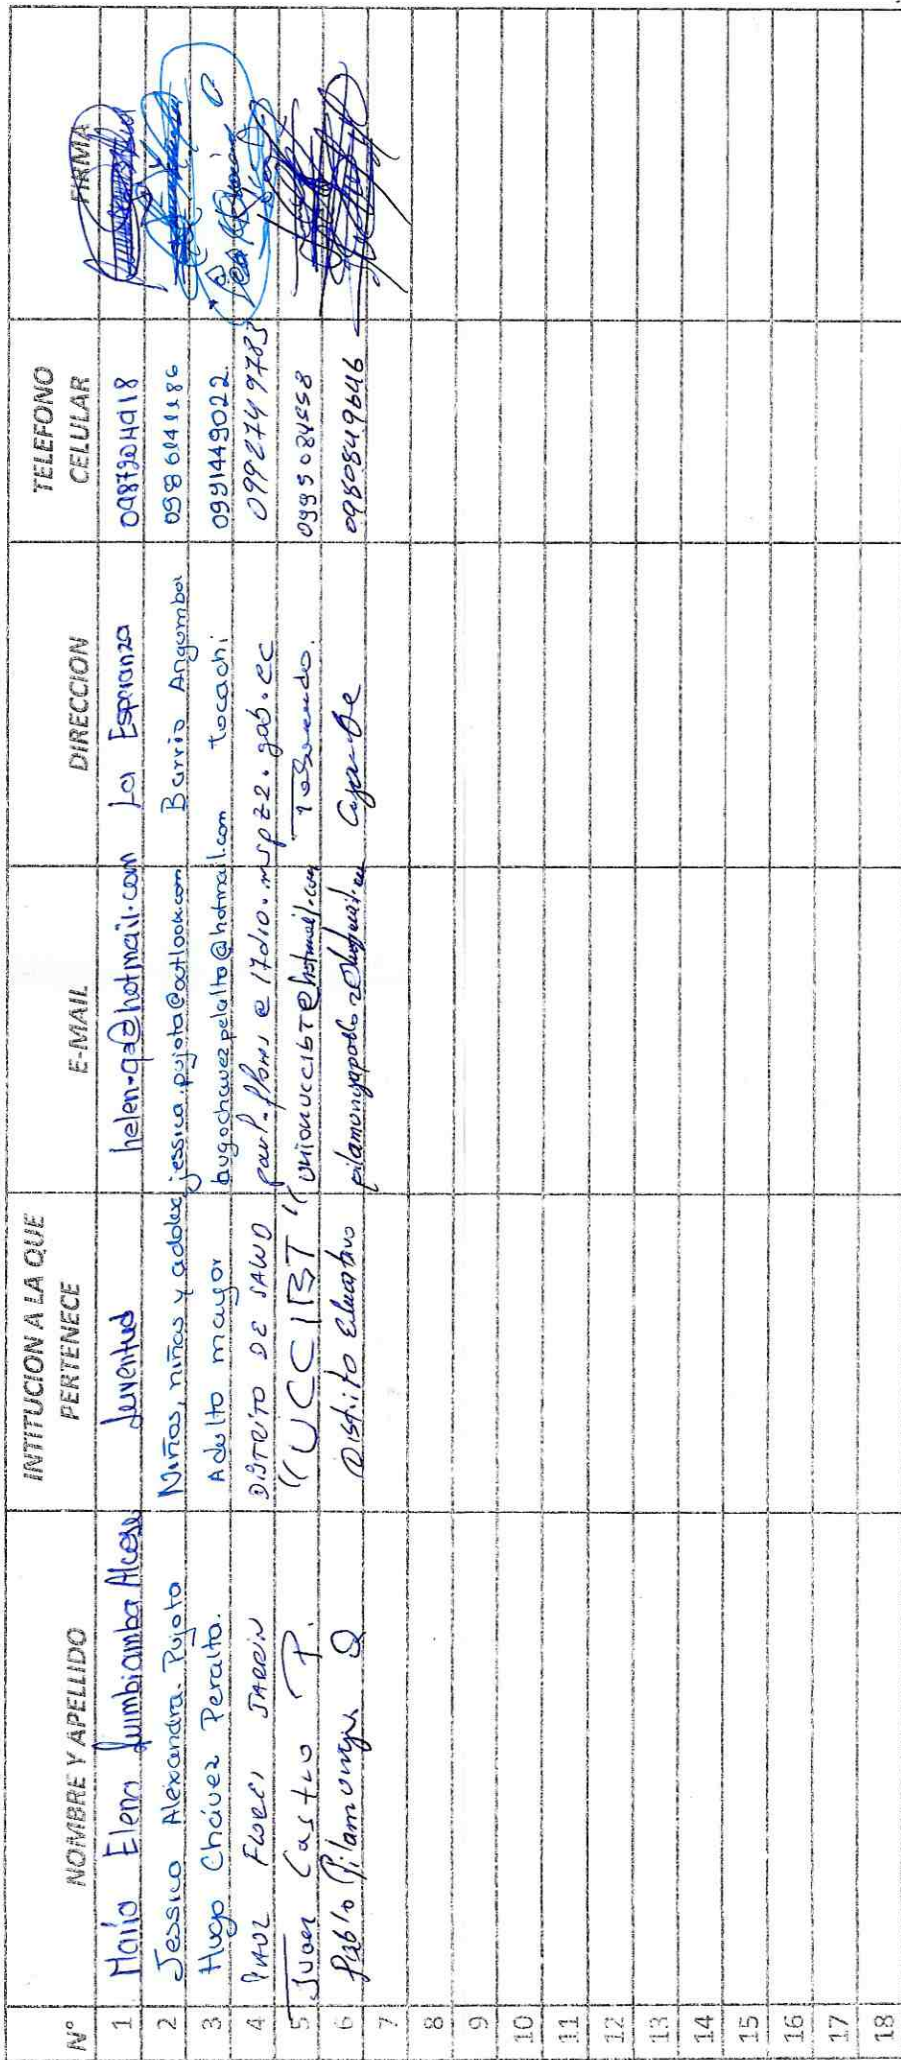 N° NOMBRE Y APELLIDO INTITUCION A LA QUE PERTENECE E-MAIL DIRECCION TELEFONO CELULAR FIRMA
1 María Elena Quimbiamba Juventud helen-qa@hotmail.com La Esperanza 0987204918
2 Jessica Alexandra Pujota Niños, niñas y adolec jessica.pujota@outlook.com Barrio Angumba
3 Hugo Chávez Peralta. Adulto mayor hugochavezperalto@hotmail.com tocachi 0991449022
4 PAUL FLORES JARRIN DISTRITO DE SALUD paul.flores@17d10.mspz2.gob.ec 0992749783
5 Juan Castro P. "UCCIBT" unionuccibt@hotmail.com Tabacundo. 0995084558
6 Pablo Pilamunga Q Distrito Educativo Cayambe 0980849646
7
8
9
10
11
12
13
14
15
16
17
18